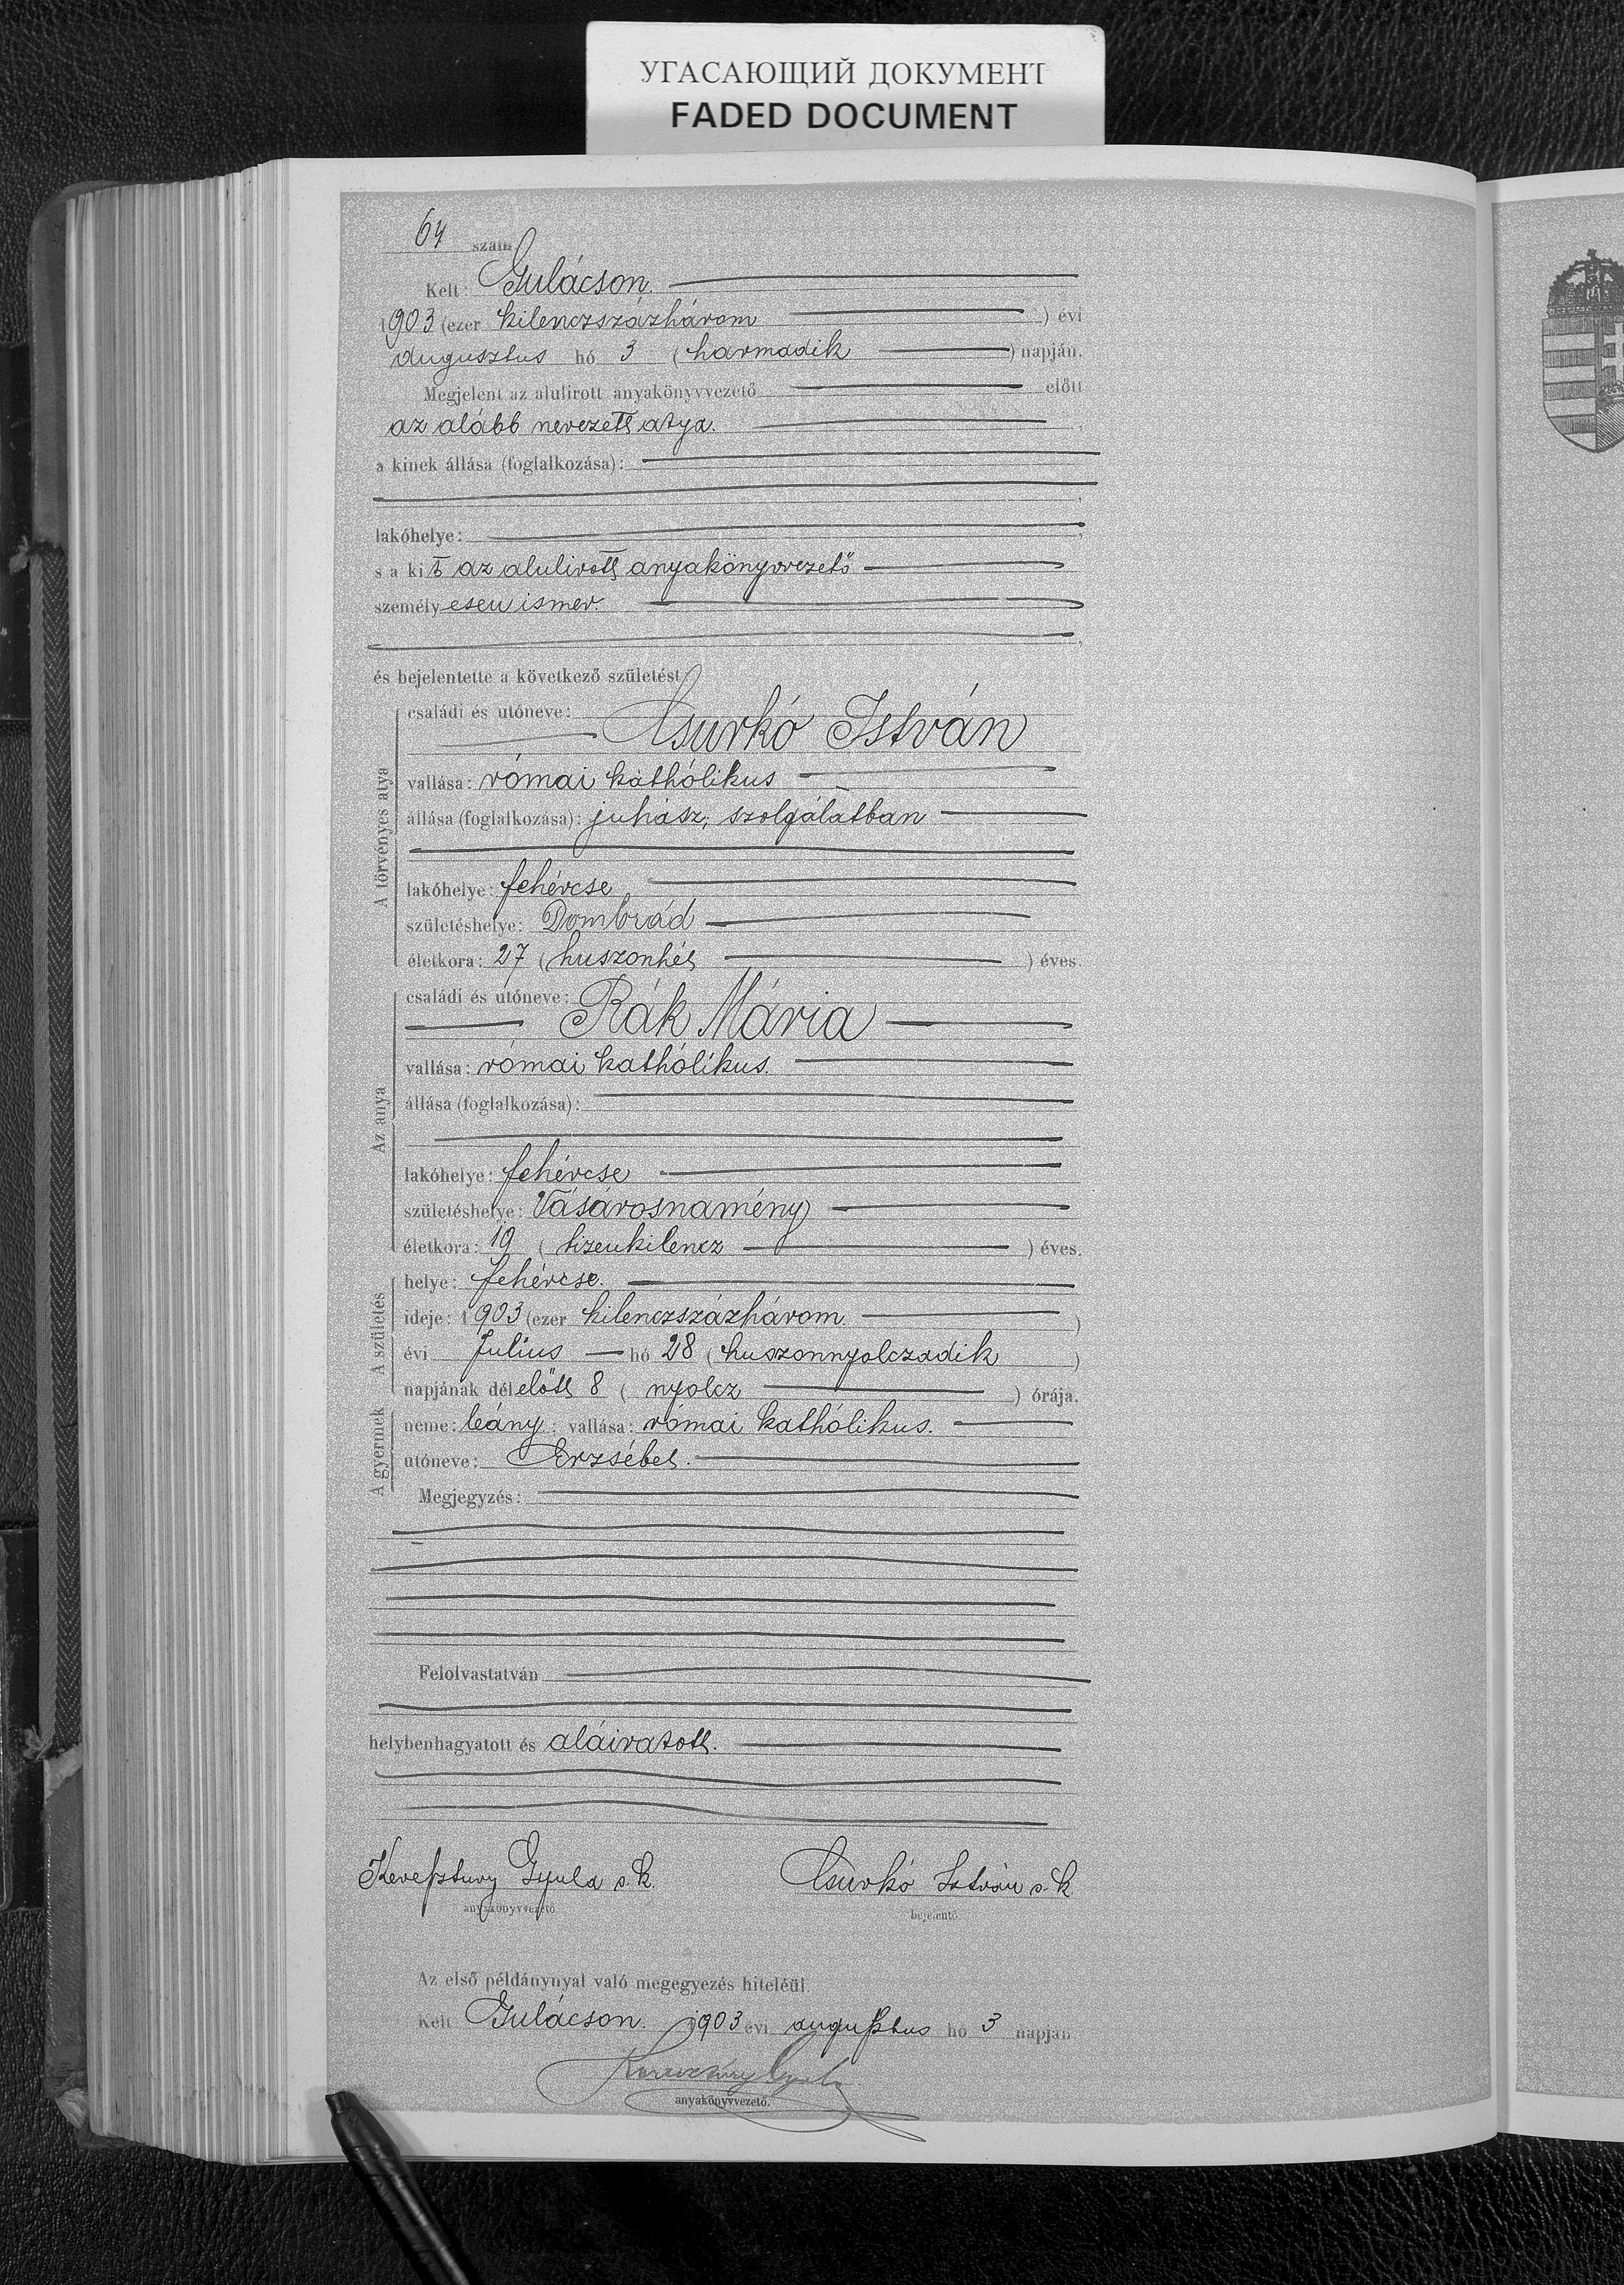 УГАСАЮЩИЙ ДОКУМЕНТ
FADED DOCUMENT
64 szám.
Kelt: Gulácson.
1903 (ezer kilenczszázhárom ) évi
augusztus hó 3 (harmadik ) napján.
Megjelent az alulirott anyakönyvvezető előtt
az alább nevezett atya.
a kinek állása (foglalkozása):
lakóhelye:
s a kit az alulirott anyakönyvvezető
személyesen ismer.
és bejelentette a következő születést:
A törvényes atya
családi és utóneve:
Csurkó István
vallása: római kathólikus
állása (foglalkozása): juhász, szolgálatban
lakóhelye: fehércse
születéshelye: Dombrád
életkora: 27 (huszonhét ) éves.
Az anya
családi és utóneve:
Rák Mária
vallása: római kathólikus.
állása (foglalkozása):
lakóhelye: fehércse
születéshelye: Vásárosnamény
életkora: 19 (tizenkilencz ) éves.
A születés
helye: fehércse.
ideje: 1903 (ezer kilenczszázhárom. )
évi Julius hó 28 (huszonnyolczadik )
napjának délelőtt 8 (nyolcz ) órája.
A gyermek
neme: leány; vallása: római kathólikus.
utóneve: Erzsébet.
Megjegyzés:
Felolvastatván
helybenhagyatott és aláiratott.
Keresztury Gyula s. k. Csurkó István s. k.
anyakönyvvezető bejelentő.
Az első példánynyal való megegyezés hiteléül.
Kelt Gulácson. 1903 évi augusztus hó 3 napján.
Keresztury Gyula
anyakönyvvezető.